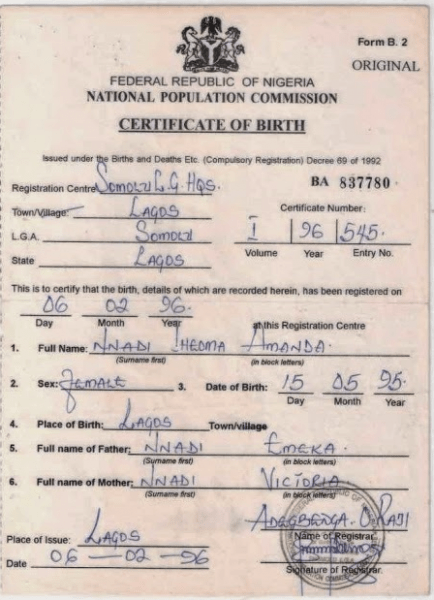 Form B. 2
ORIGINAL
FEDERAL REPUBLIC OF NIGERIA
NATIONAL POPULATION COMMISSION
CERTIFICATE OF BIRTH
Issued under the Births and Deaths Etc. (Compulsory Registration) Decree 69 of 1992
Registration Centre SOMOLU L.G. HQS.
BA 837780
Town/Village: LAGOS
Certificate Number:
L.G.A. SOMOLU
I 96 545
Volume Year Entry No.
State LAGOS
This is to certify that the birth, details of which are recorded herein, has been registered on
06 02 96
Day Month Year at this Registration Centre
1. Full Name: NNADI IHEOMA AMANDA
(Surname first) (in block letters)
2. Sex: FEMALE 3. Date of Birth: 15 05 95
Day Month Year
4. Place of Birth: LAGOS Town/village
5. Full name of Father: NNADI EMEKA
(Surname first) (in block letters)
6. Full name of Mother: NNADI VICTORIA
(Surname first) (in block letters)
ADEGBENGA O RAJI
Place of Issue: LAGOS Name of Registrar
Date 06-02-96
Signature of Registrar